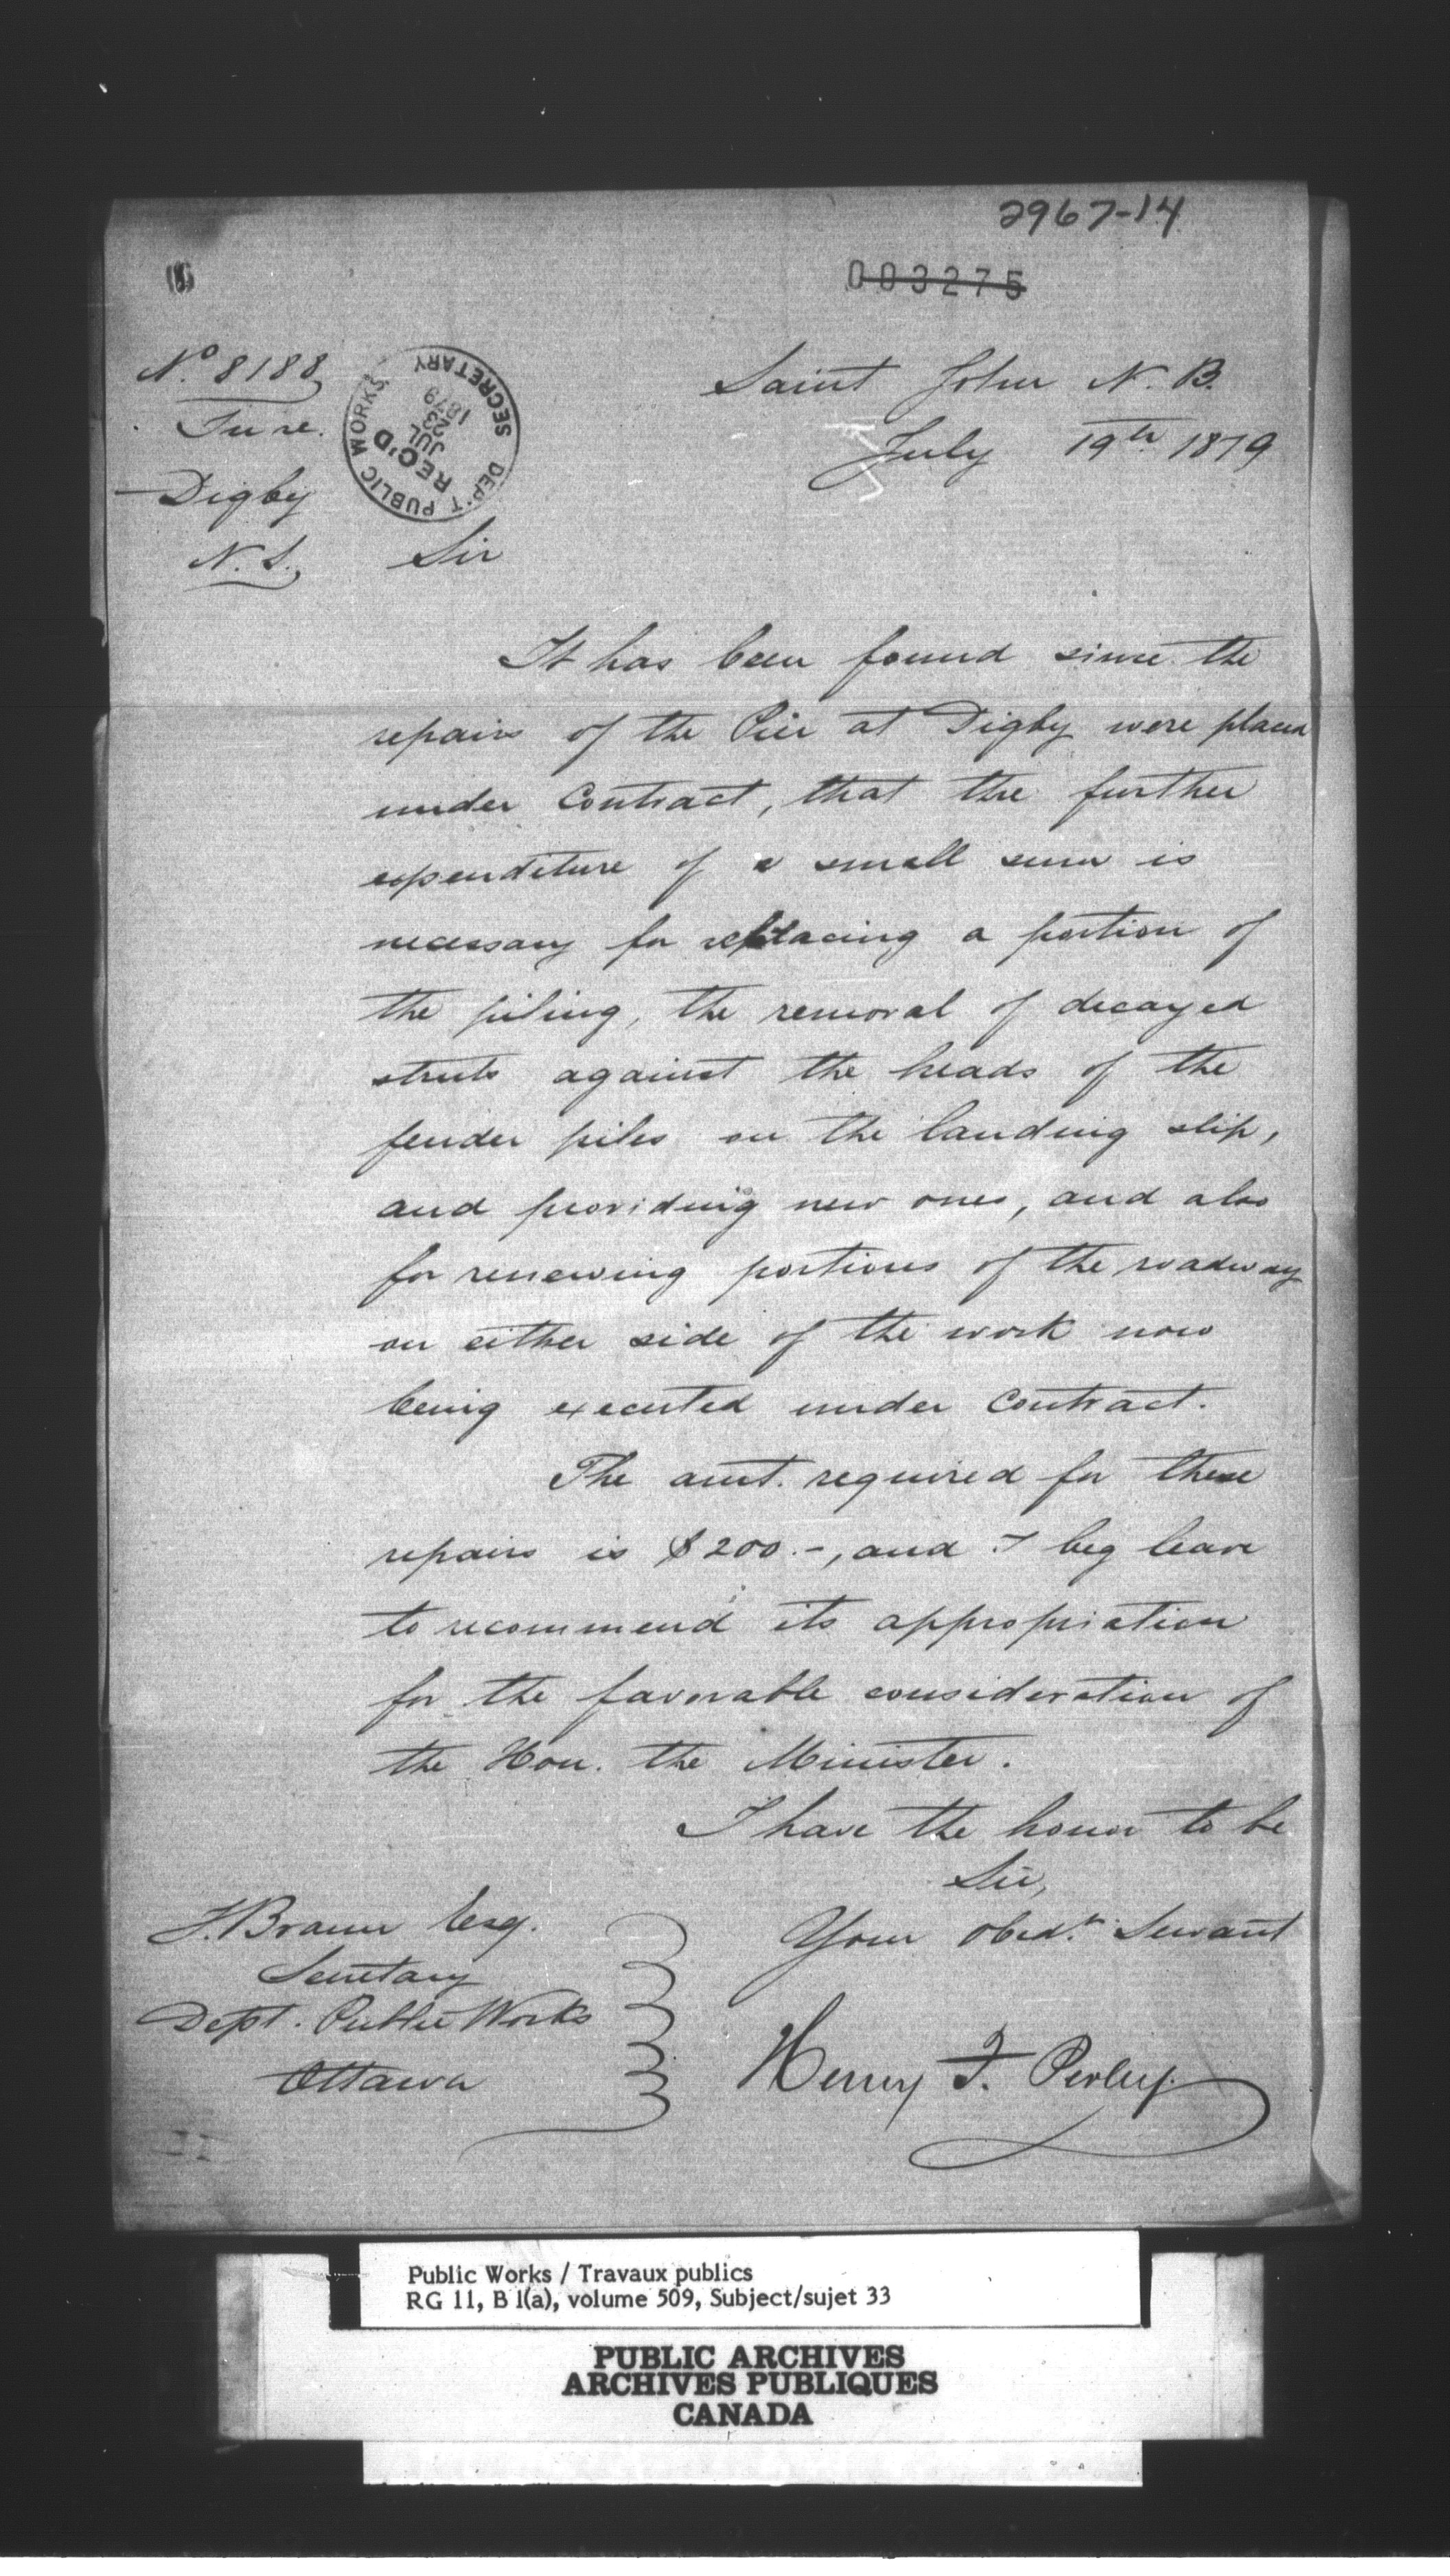 2967-14
003275
No 8188
Digby
N.S.
DEP'T PUBLIC WORKS
SECRETARY
REC'D
JUL
23
1879
Saint John N. B.
July 19th 1879
Sir
It has been found since the
repairs of the Pier at Digby were placed
under Contract, that the further
expenditure of a small sum is
necessary for replacing a portion of
the piling, the removal of decayed
struts against the heads of the
fender piles on the landing slip,
and providing new ones, and also
for renewing portions of the roadway
on either side of the work now
being executed under Contract.
The amt. required for these
repairs is $200.-, and I beg leave
to recommend its appropriation
for the favorable consideration of
the Hon. the Minister.
I have the honor to be
Sir,
Your obedt. Servant
Henry F. Perley
F. Braun Esq.
Secretary
Dept. Public Works
Ottawa
Public Works / Travaux publics
RG 11, B 1(a), volume 509, Subject/sujet 33
PUBLIC ARCHIVES
ARCHIVES PUBLIQUES
CANADA